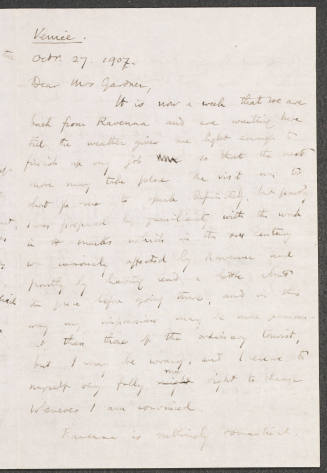 Venice.
Oct. 27. 1907.
Dear Mrs Gardner,
It is now a week that we are
back from Ravenna and are waiting here
till the weather gives me light enough to
finish up my job so that the next
move may take place. The visit was to
short for me to speak definitely, but partly
I was prepared by familiarity with the work
in St Marks which in the century
was variously affected by Ravenna and
partly by having read a little about
the place before going there, and in this
way my impressions may be more
than those of the ordinary tourist,
but I may be wrong, and I reserve to
myself very fully my right to change
whenever I am convinced.
Ravenna is entirely